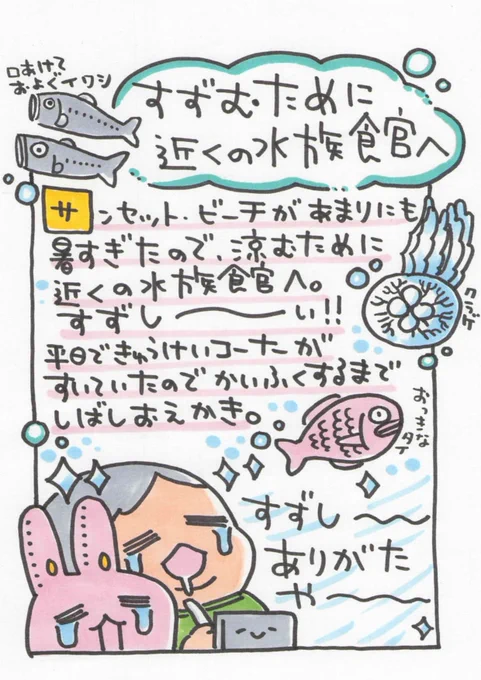 口あけて
およぐイワシ
すずむために
近くの水族館へ
サンセット・ビーチがあまりにも
暑すぎたので、涼むために
近くの水族館へ。
すずし〜い!!
平日できゅうけいコーナーが
すいていたのでかいふくするまで
しばしおえかき。
クラゲ
おっきな
タイ
すずし〜
ありがた
や〜